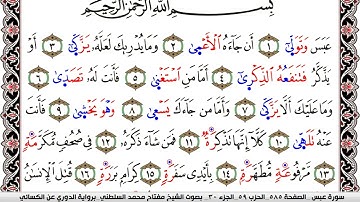 بِسْمِ اللَّهِ الرَّحْمَٰنِ الرَّحِيمِ
عَبَسَ وَتَوَلَّىٰ ١ أَن جَاءَهُ الْأَعْمَىٰ ٢ وَمَا يُدْرِيكَ لَعَلَّهُ يَزَّكَّىٰ ٣ أَوْ
يَذَّكَّرُ فَتَنفَعُهُ الذِّكْرَىٰ ٤ أَمَّا مَنِ اسْتَغْنَىٰ ٥ فَأَنتَ لَهُ تَصَدَّىٰ ٦
وَمَا عَلَيْكَ أَلَّا يَزَّكَّىٰ ٧ وَأَمَّا مَن جَاءَكَ يَسْعَىٰ ٨ وَهْوَ يَخْشَىٰ ٩ فَأَنتَ
عَنْهُ تَلَهَّىٰ ١٠ كَلَّا إِنَّهَا تَذْكِرَةٌ ١١ فَمَن شَاءَ ذَكَرَهُ ١٢ فِي صُحُفٍ مُّكَرَّمَةٍ
١٣ مَّرْفُوعَةٍ مُّطَهَّرَةٍ ١٤ بِأَيْدِي سَفَرَةٍ ١٥ كِرَامٍ بَرَرَةٍ ١٦ قُتِلَ الْإِنسَٰنُ
سورة عبس . الصفحة ٥٨٥ . الحزب ٥٩ . الجزء ٣٠ . بصوت الشيخ مفتاح محمد السلطني . برواية الدوري عن الكسائي